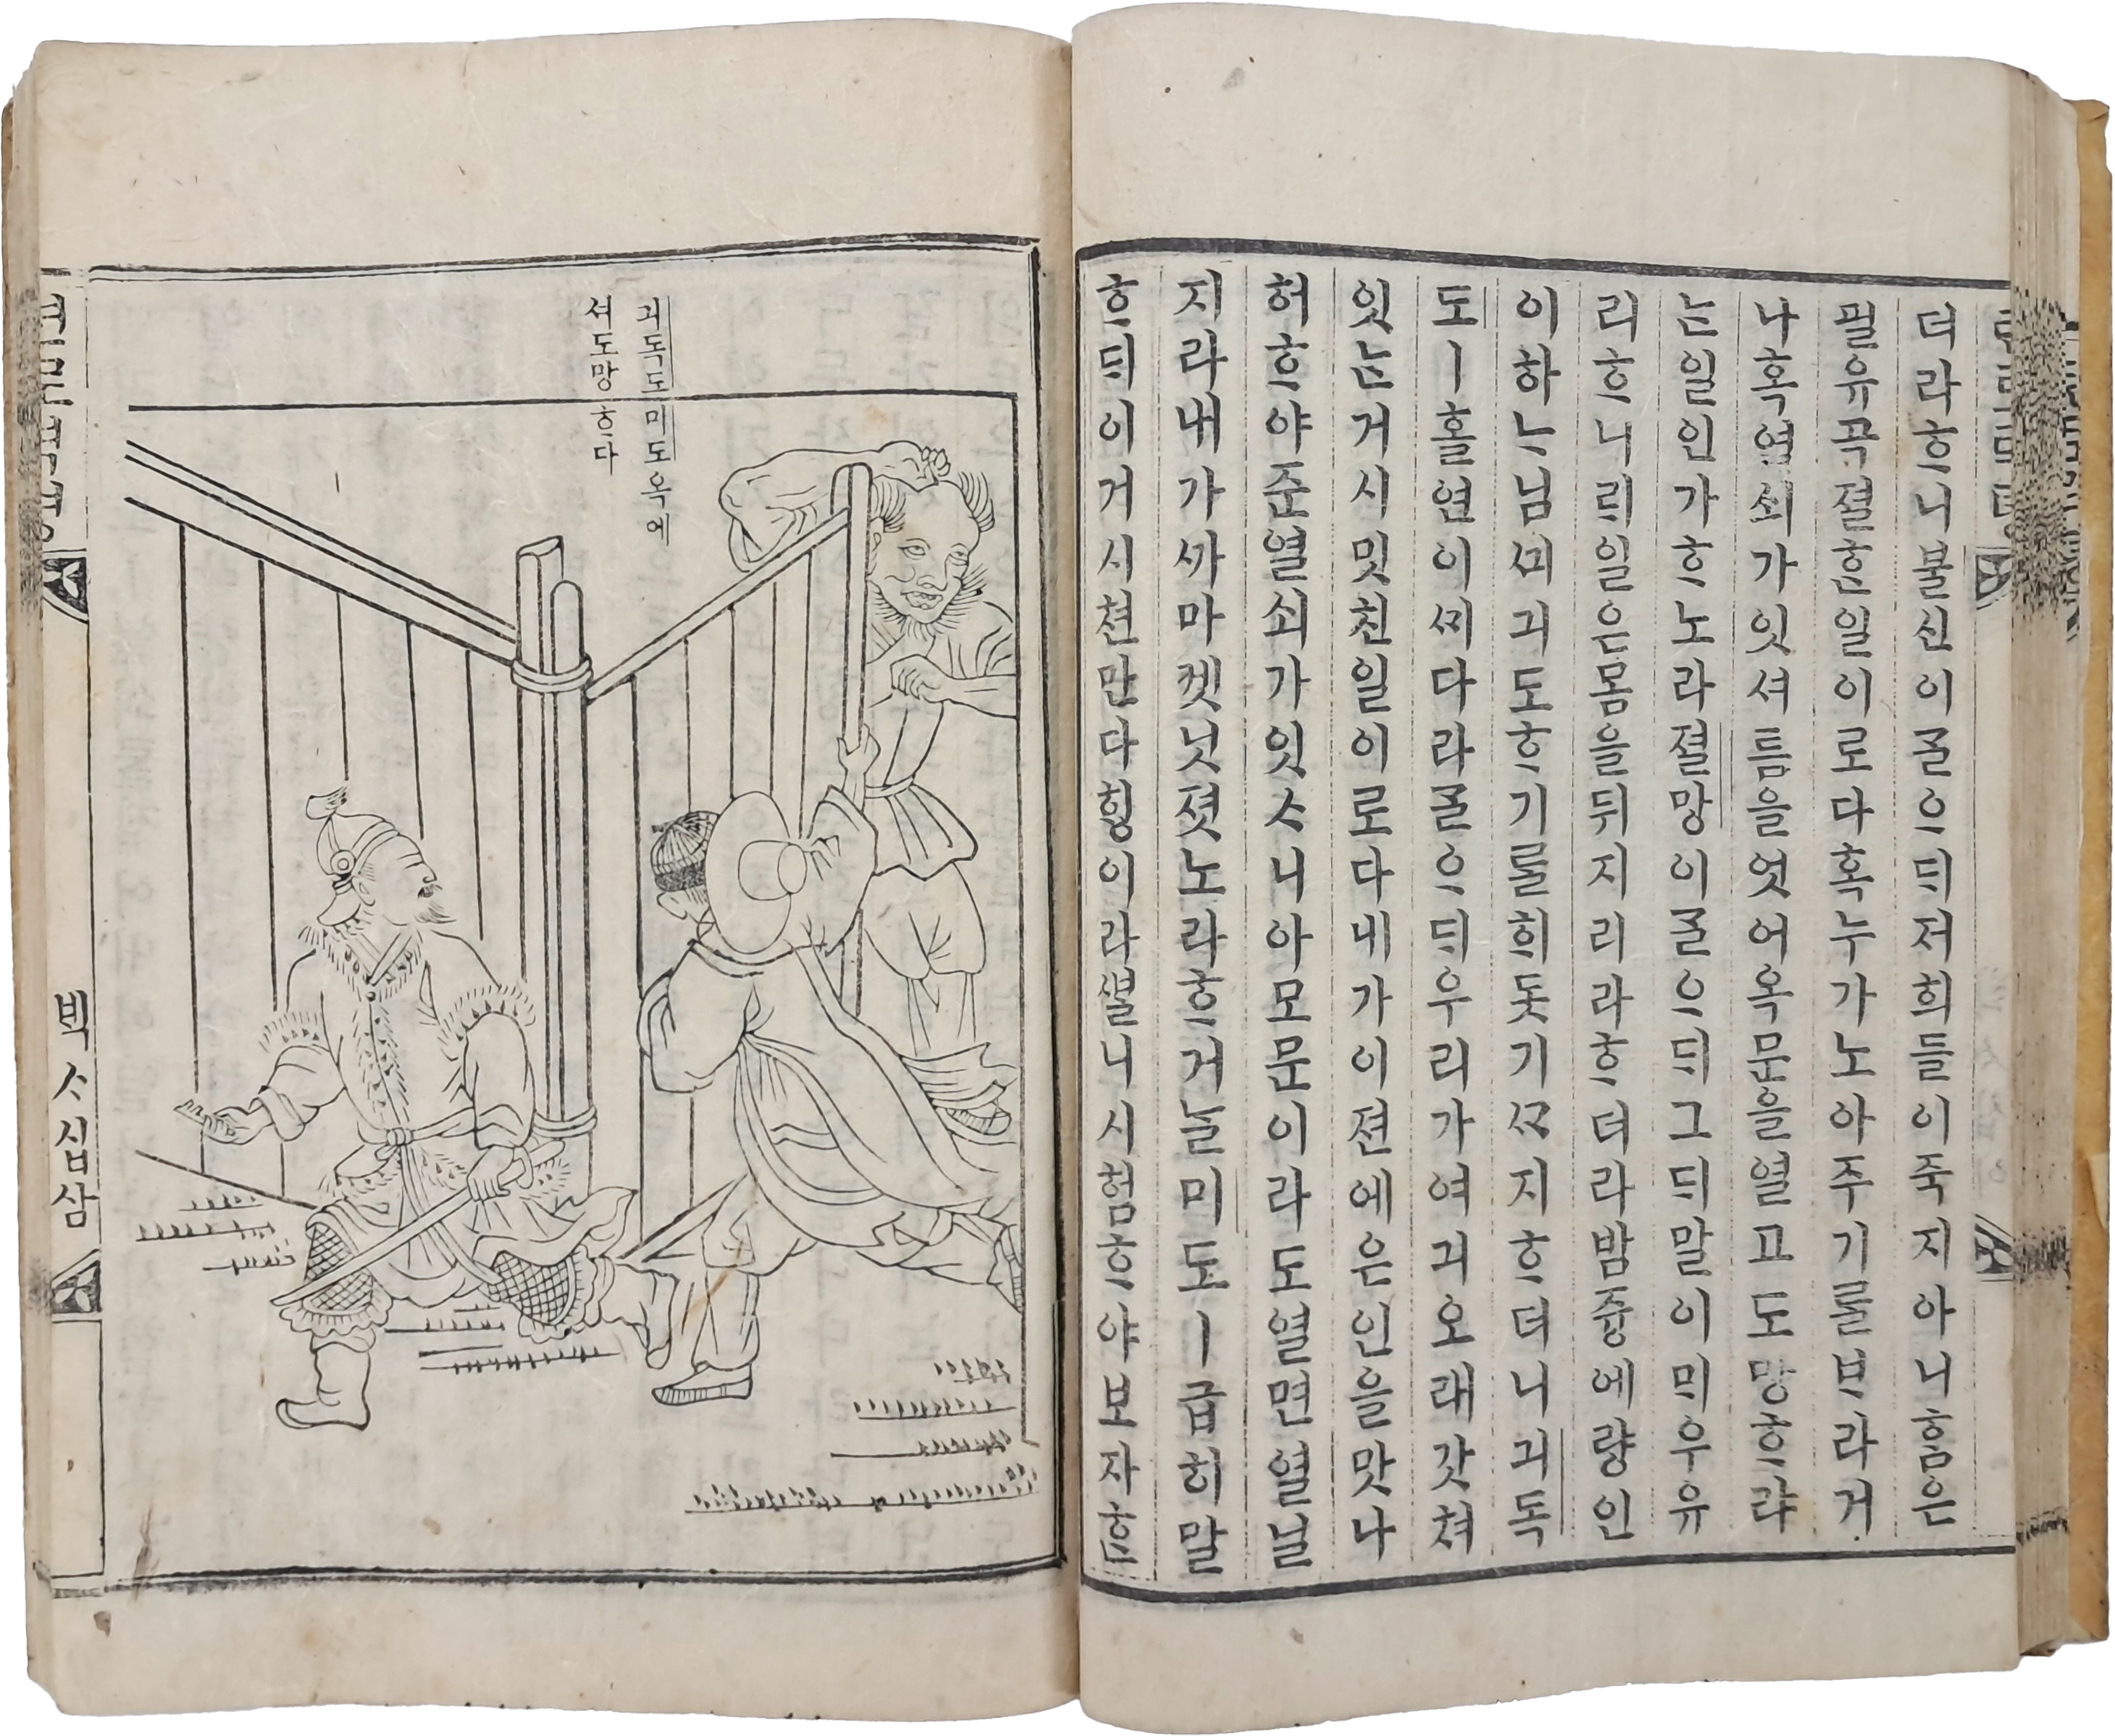 더라ᄒᆞ니불신이ᄀᆞᆯᄋᆞᄃᆡ저희들이죽지아니ᄒᆞᆷ은
필유곡졀ᄒᆞᆫ일이로다혹누가노아주기ᄅᆞᆯᄇᆞ라거
나혹열쇠가잇셔틈을엿어옥문을열고도망ᄒᆞ랴
ᄂᆞᆫ일인가ᄒᆞ노라졀망이ᄀᆞᆯᄋᆞᄃᆡ그ᄃᆡ말이ᄆᆡ우유
리ᄒᆞ니ᄅᆡ일은몸을뒤지리라ᄒᆞ더라밤즁에량인
이하ᄂᆞ님ᄭᅴ긔도ᄒᆞ기ᄅᆞᆯᄒᆡ돗기ᄭᆞ지ᄒᆞ더니긔독
도ㅣ홀연이ᄭᆡ다라ᄀᆞᆯᄋᆞᄃᆡ우리가여긔오래갓쳐
잇ᄂᆞᆫ거시밋친일이로다내가이젼에은인을맛나
허ᄒᆞ야준열쇠가잇ᄉᆞ니아모문이라도열면열닐
지라내가ᄭᅡ마케닛졋노라ᄒᆞ거ᄂᆞᆯ미도ㅣ급히말
ᄒᆞᄃᆡ이거시쳔만다ᄒᆡᆼ이라ᄲᆞᆯ니시험ᄒᆞ야보쟈ᄒᆞᆫ
긔독도미도옥에
셔도망ᄒᆞ다
ᄇᆡᆨᄉᆞ십삼